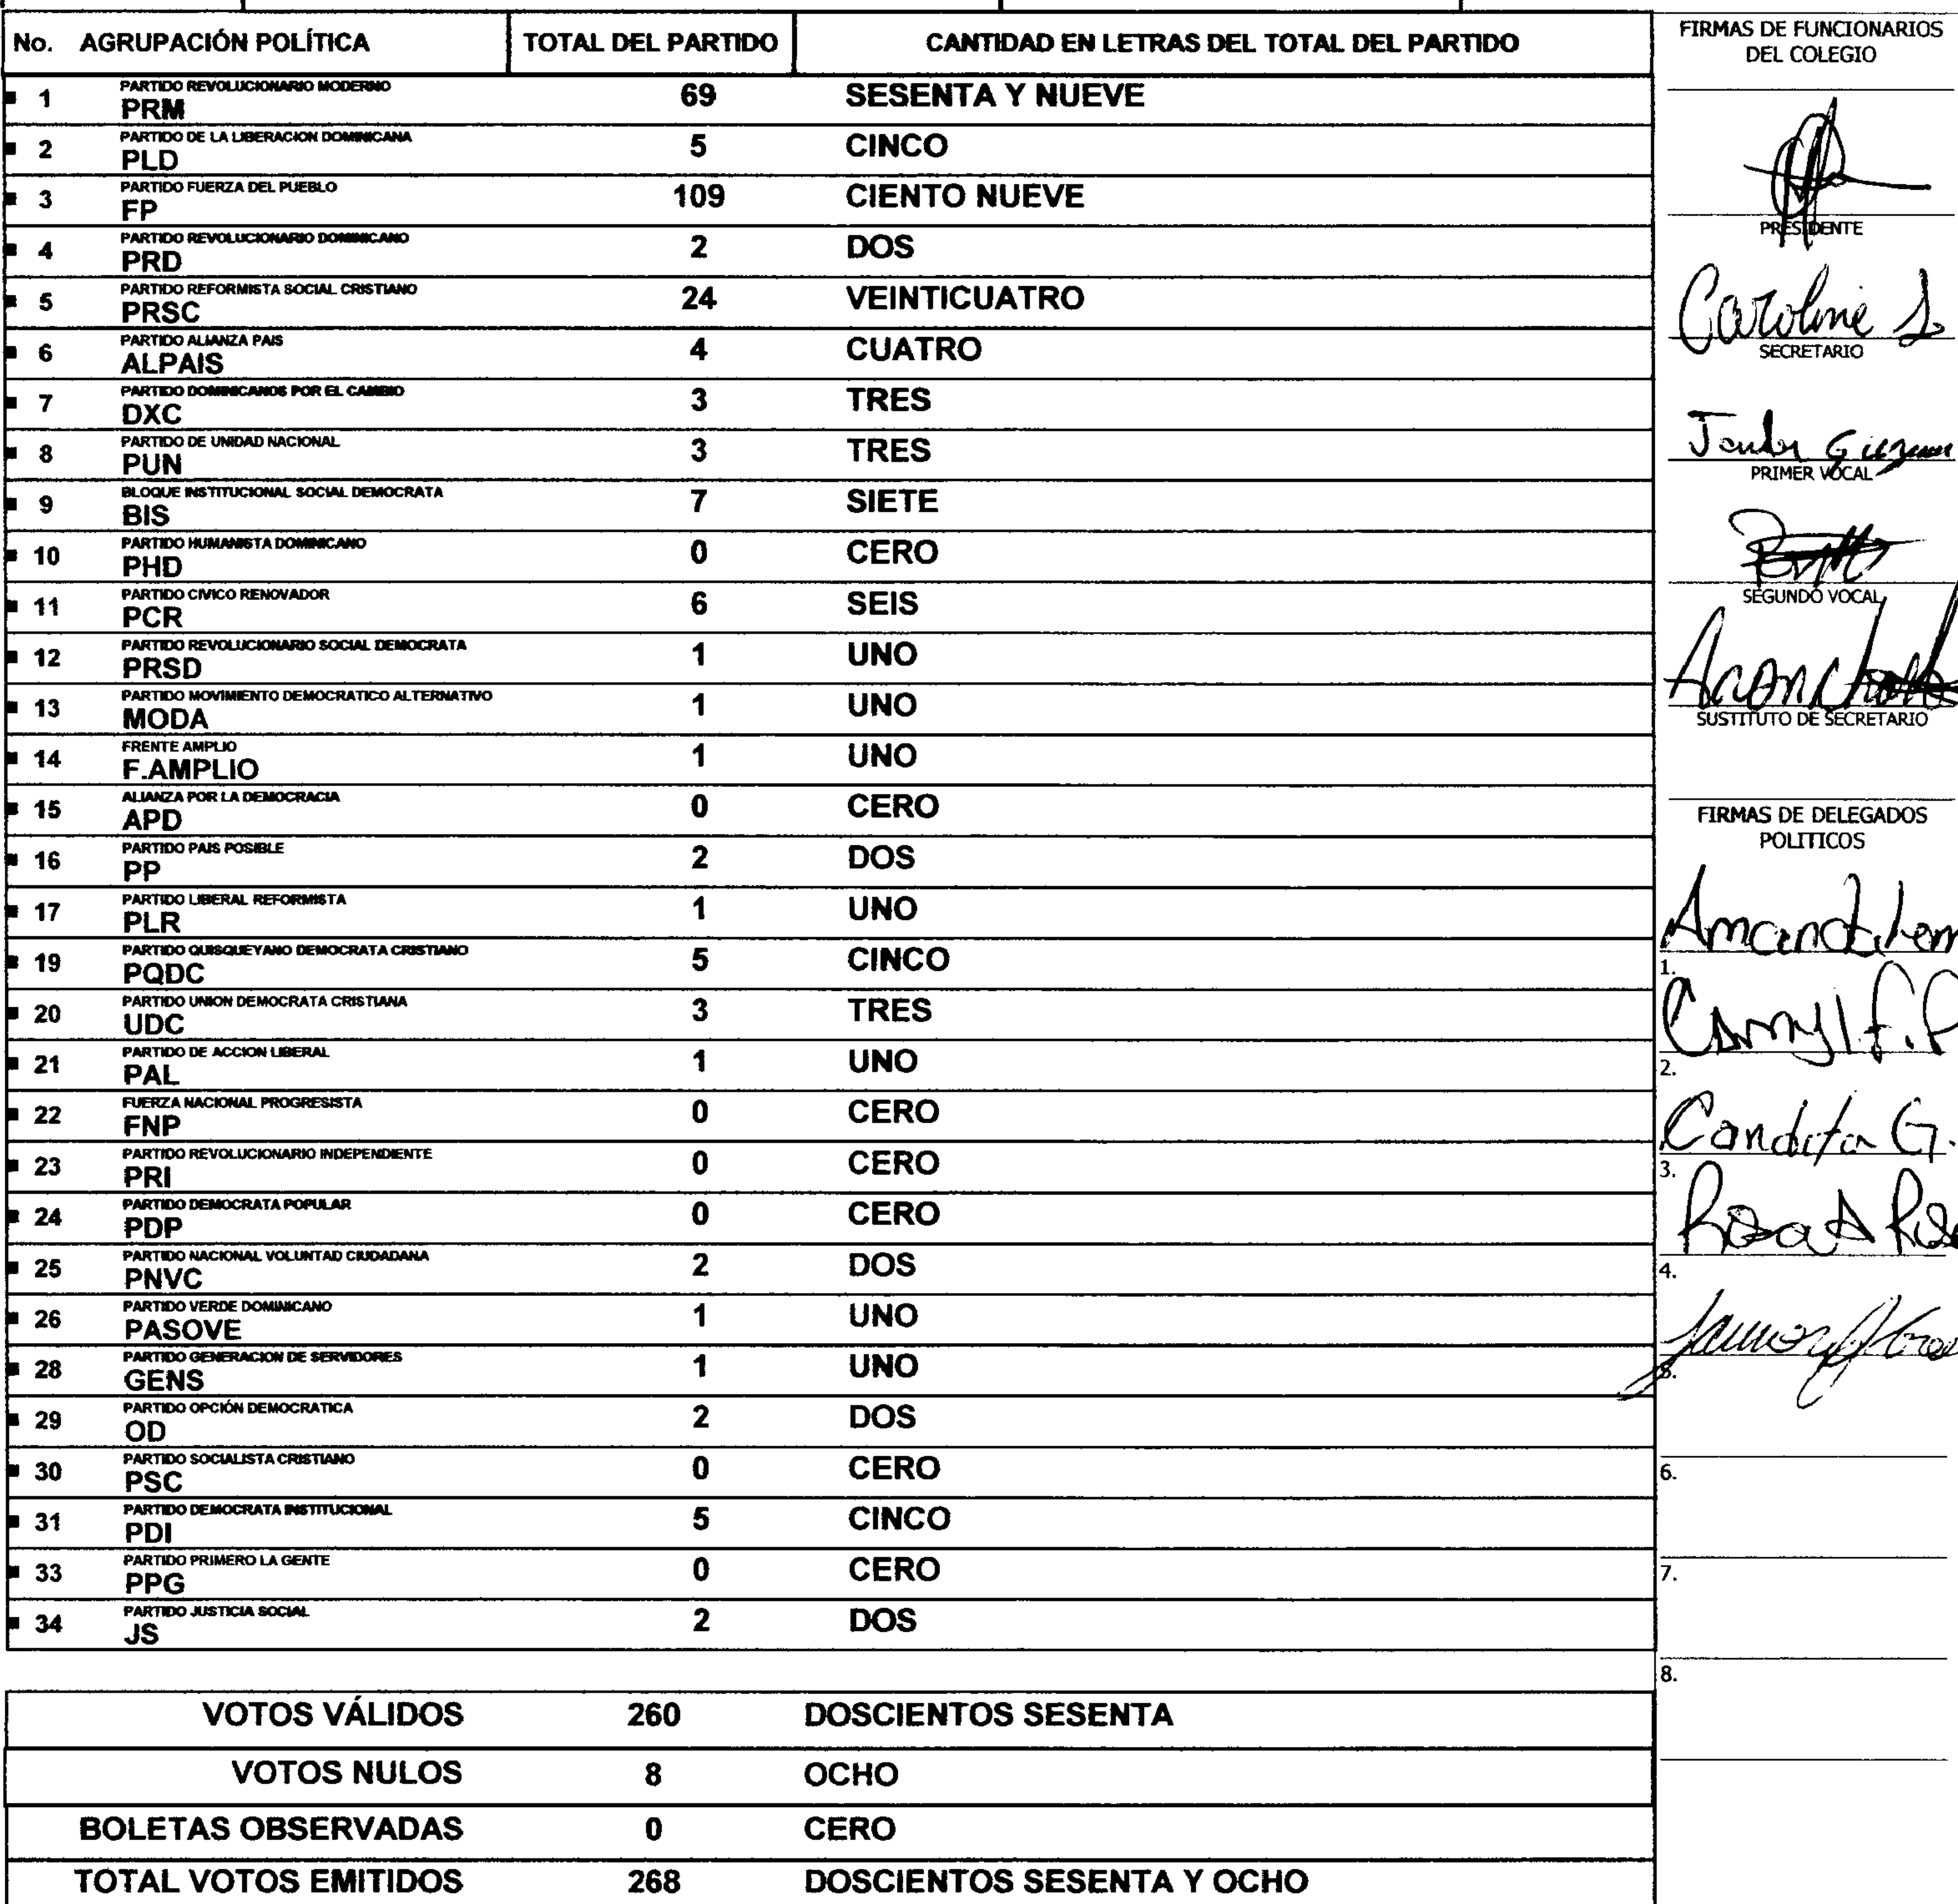 No. AGRUPACIÓN POLÍTICA TOTAL DEL PARTIDO CANTIDAD EN LETRAS DEL TOTAL DEL PARTIDO
PARTIDO REVOLUCIONARIO MODERNO
1 PRM 69 SESENTA Y NUEVE
PARTIDO DE LA LIBERACION DOMINICANA
2 PLD 5 CINCO
PARTIDO FUERZA DEL PUEBLO
3 FP 109 CIENTO NUEVE
PARTIDO REVOLUCIONARIO DOMINICANO
4 PRD 2 DOS
PARTIDO REFORMISTA SOCIAL CRISTIANO
5 PRSC 24 VEINTICUATRO
PARTIDO ALIANZA PAIS
6 ALPAIS 4 CUATRO
PARTIDO DOMINICANOS POR EL CAMBIO
7 DXC 3 TRES
PARTIDO DE UNIDAD NACIONAL
8 PUN 3 TRES
BLOQUE INSTITUCIONAL SOCIAL DEMOCRATA
9 BIS 7 SIETE
PARTIDO HUMANISTA DOMINICANO
10 PHD 0 CERO
PARTIDO CIVICO RENOVADOR
11 PCR 6 SEIS
PARTIDO REVOLUCIONARIO SOCIAL DEMOCRATA
12 PRSD 1 UNO
PARTIDO MOVIMIENTO DEMOCRATICO ALTERNATIVO
13 MODA 1 UNO
FRENTE AMPLIO
14 F.AMPLIO 1 UNO
ALIANZA POR LA DEMOCRACIA
15 APD 0 CERO
PARTIDO PAIS POSIBLE
16 PP 2 DOS
PARTIDO LIBERAL REFORMISTA
17 PLR 1 UNO
PARTIDO QUISQUEYANO DEMOCRATA CRISTIANO
19 PQDC 5 CINCO
PARTIDO UNION DEMOCRATA CRISTIANA
20 UDC 3 TRES
PARTIDO DE ACCION LIBERAL
21 PAL 1 UNO
FUERZA NACIONAL PROGRESISTA
22 FNP 0 CERO
PARTIDO REVOLUCIONARIO INDEPENDIENTE
23 PRI 0 CERO
PARTIDO DEMOCRATA POPULAR
24 PDP 0 CERO
PARTIDO NACIONAL VOLUNTAD CIUDADANA
25 PNVC 2 DOS
PARTIDO VERDE DOMINICANO
26 PASOVE 1 UNO
PARTIDO GENERACION DE SERVIDORES
28 GENS 1 UNO
PARTIDO OPCIÓN DEMOCRATICA
29 OD 2 DOS
PARTIDO SOCIALISTA CRISTIANO
30 PSC 0 CERO
PARTIDO DEMOCRATA INSTITUCIONAL
31 PDI 5 CINCO
PARTIDO PRIMERO LA GENTE
33 PPG 0 CERO
PARTIDO JUSTICIA SOCIAL
34 JS 2 DOS
VOTOS VÁLIDOS 260 DOSCIENTOS SESENTA
VOTOS NULOS 8 OCHO
BOLETAS OBSERVADAS 0 CERO
TOTAL VOTOS EMITIDOS 268 DOSCIENTOS SESENTA Y OCHO
FIRMAS DE FUNCIONARIOS
DEL COLEGIO
PRESIDENTE
Caroline S.
SECRETARIO
PRIMER VOCAL
SEGUNDO VOCAL
SUSTITUTO DE SECRETARIO
FIRMAS DE DELEGADOS
POLITICOS
1.
2.
Candita G.
3.
Rosa A
4.
5.
6.
7.
8.